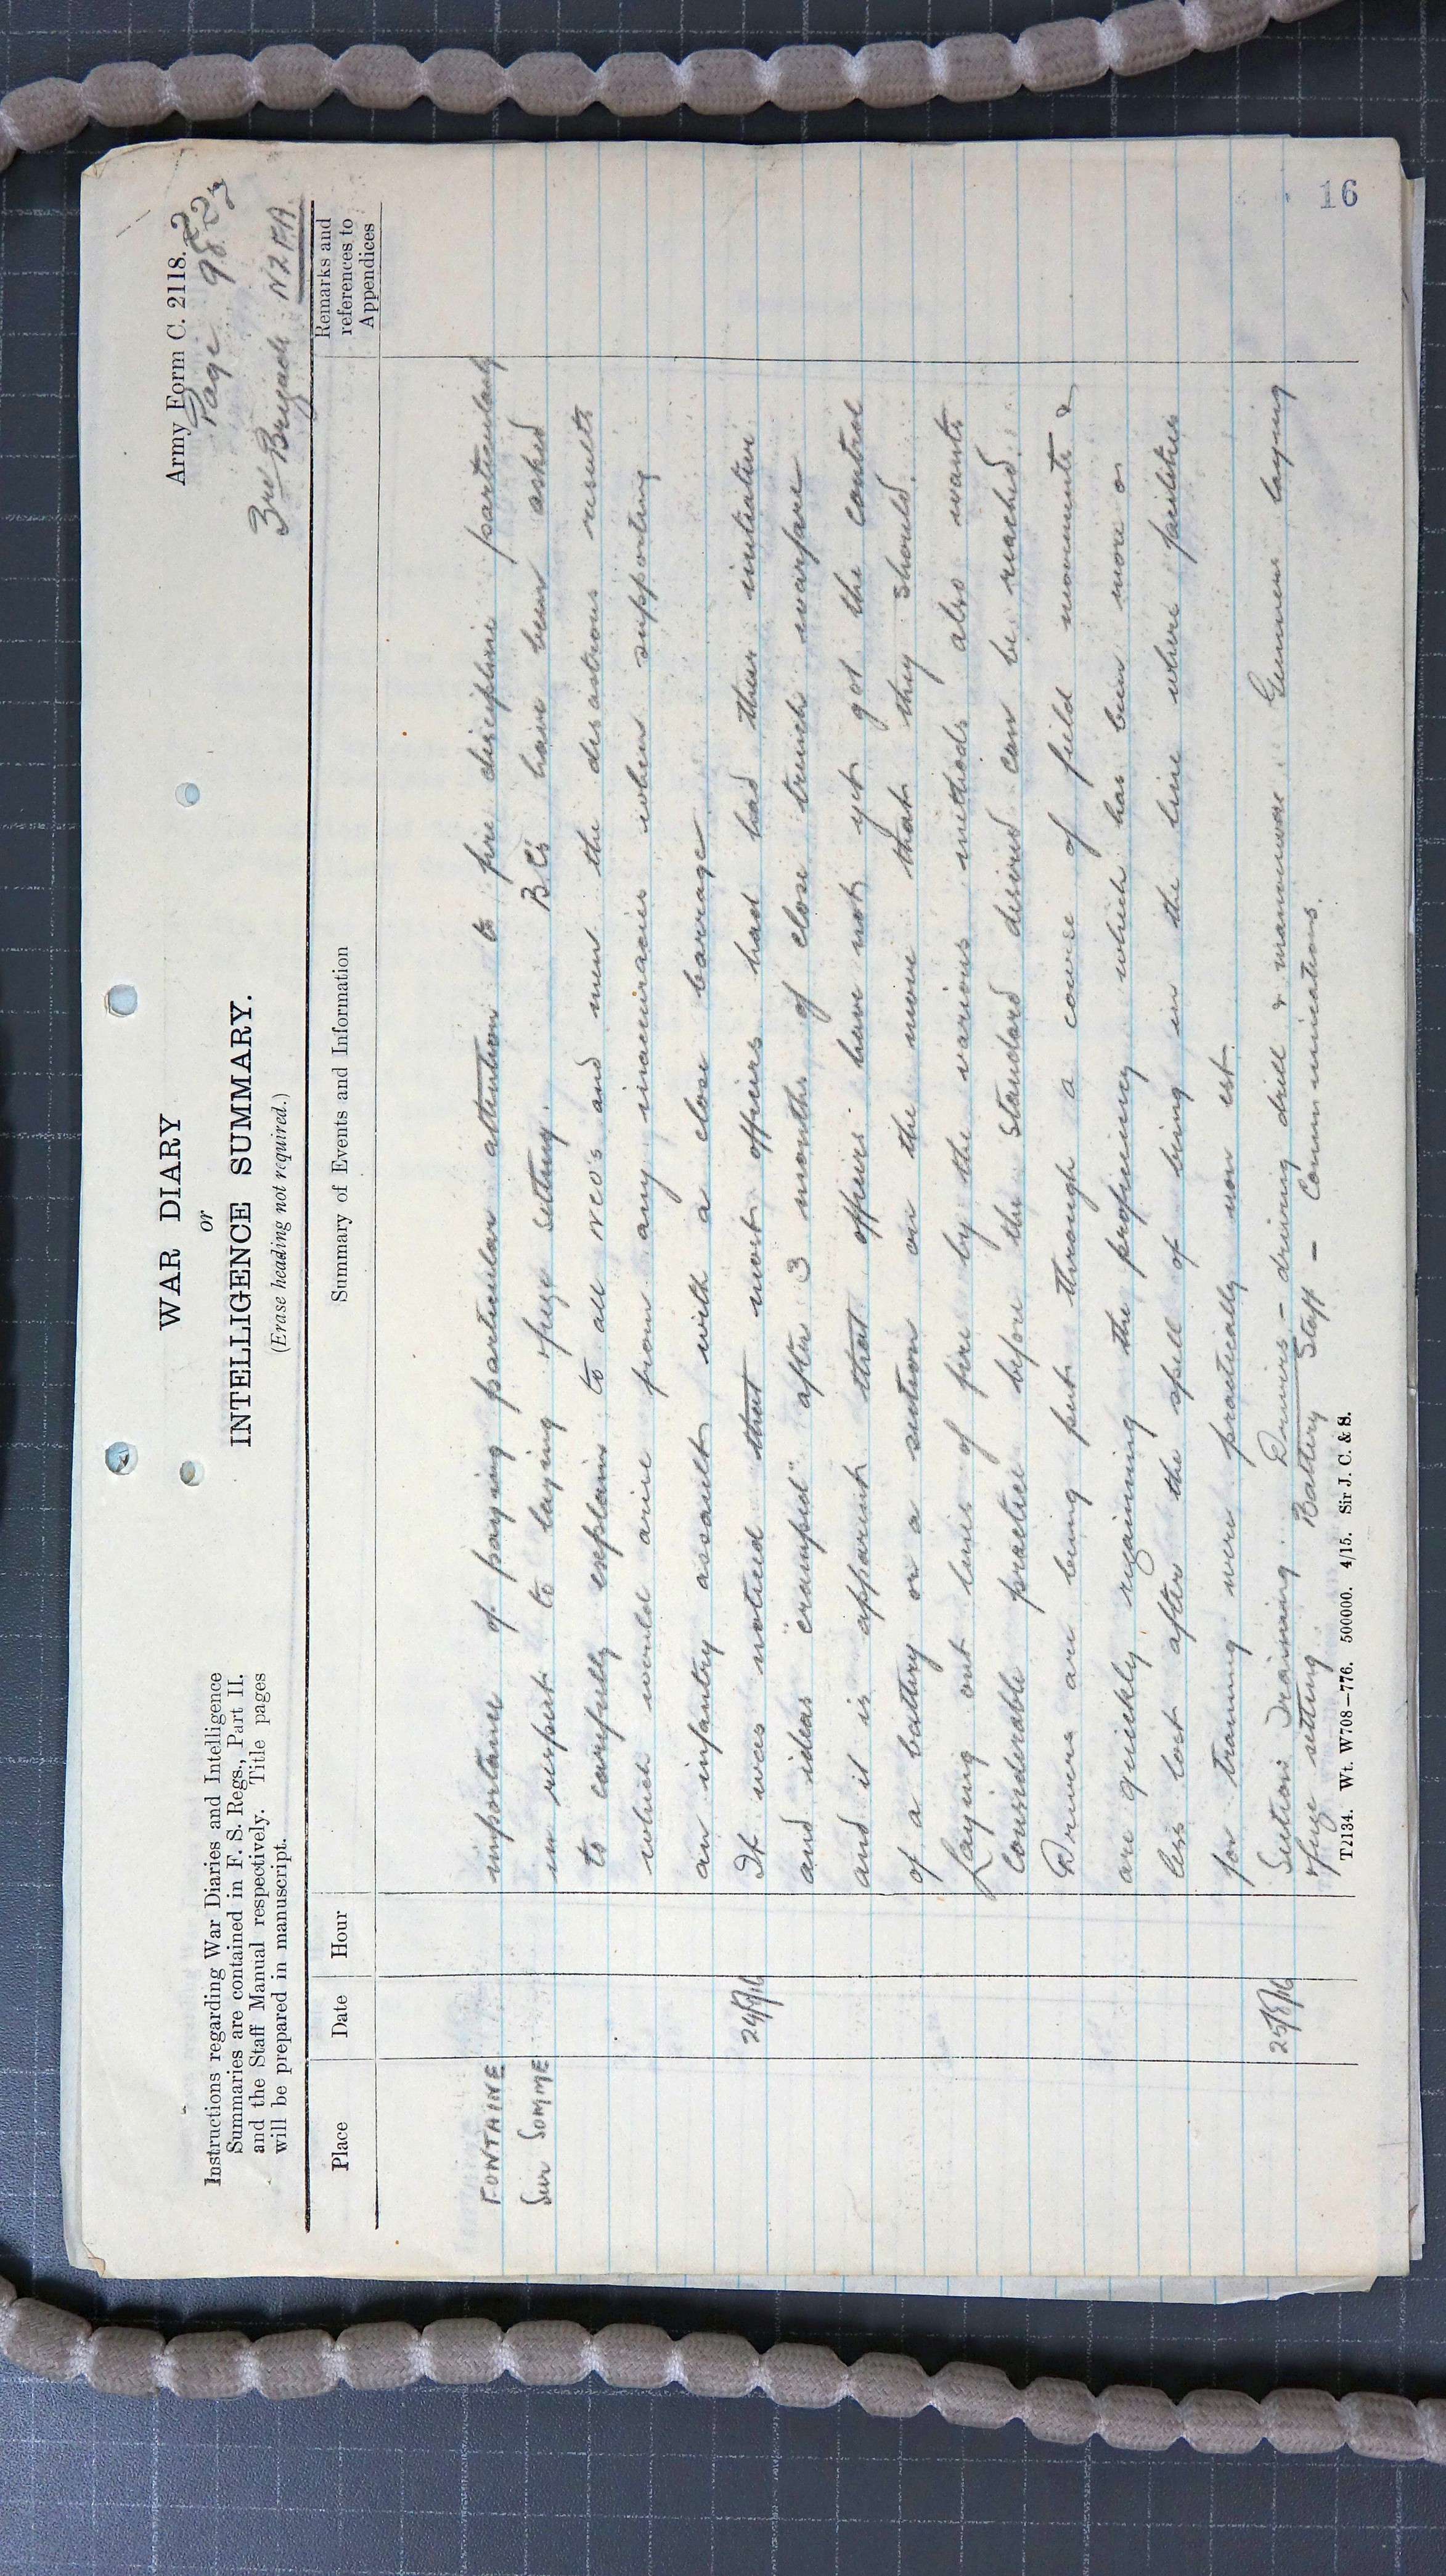 Army Form C. 2118.
WAR DIARY
or
INTELLIGENCE SUMMARY.
(Erase heading not required.)
Instructions regarding War Diaries and Intelligence
Summaries are contained in F. S. Regs., Part II.
and the Staff Manual respectively. Title pages
will be prepared in manuscript.
Page
3rd Brigade NZFA
Place
Date
Hour
Summary of Events and Information
Remarks and
references to
Appendices
FONTAINE importance of paying particular attention to fire discipline particularly
Sur SOMME in respect to laying & fuze setting. B.C's have been asked
to carefully explain to all NCO's and men the disastrous results
which would arise from any inaccuracies when supporting
an infantry assault with a close barrage.
24/8/16 It was noticed that most officers had had their initiation
and ideas "cramped" after 3 months of close trench warfare
and it is apparent that officers have not yet got the control
of a battery or a section on the move that they should.
Laying out lines of fire by the various methods also wants
considerable practice before the standard desired can be reached.
Drivers are being put through a course of field movements &
are quickly regaining the proficiency which has been more or
less lost after the spell of being in the line where facilities
for training were practically non est.
25/8/16 Section Training. Drivers - driving drill & manoeuvre. Gunners laying
& fuze setting. Battery Staff - Communications.
T2134. Wt. W708-776. 500000. 4/15. Sir J. C. & S.
16